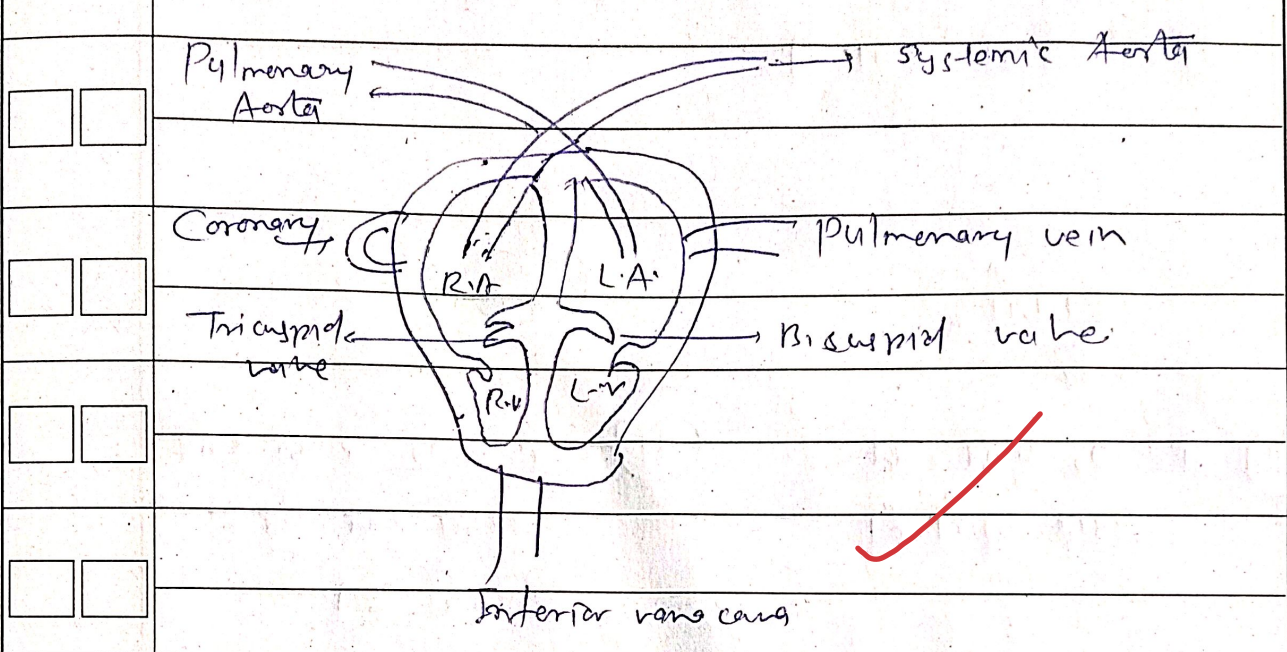 Pulmenary
Aorta
systemic Aorta
Coronary
Pulmenary vein
R.A
L.A.
Tricuspid
valve
Bicuspid valve
R.V
L.V
Inferior vana cava